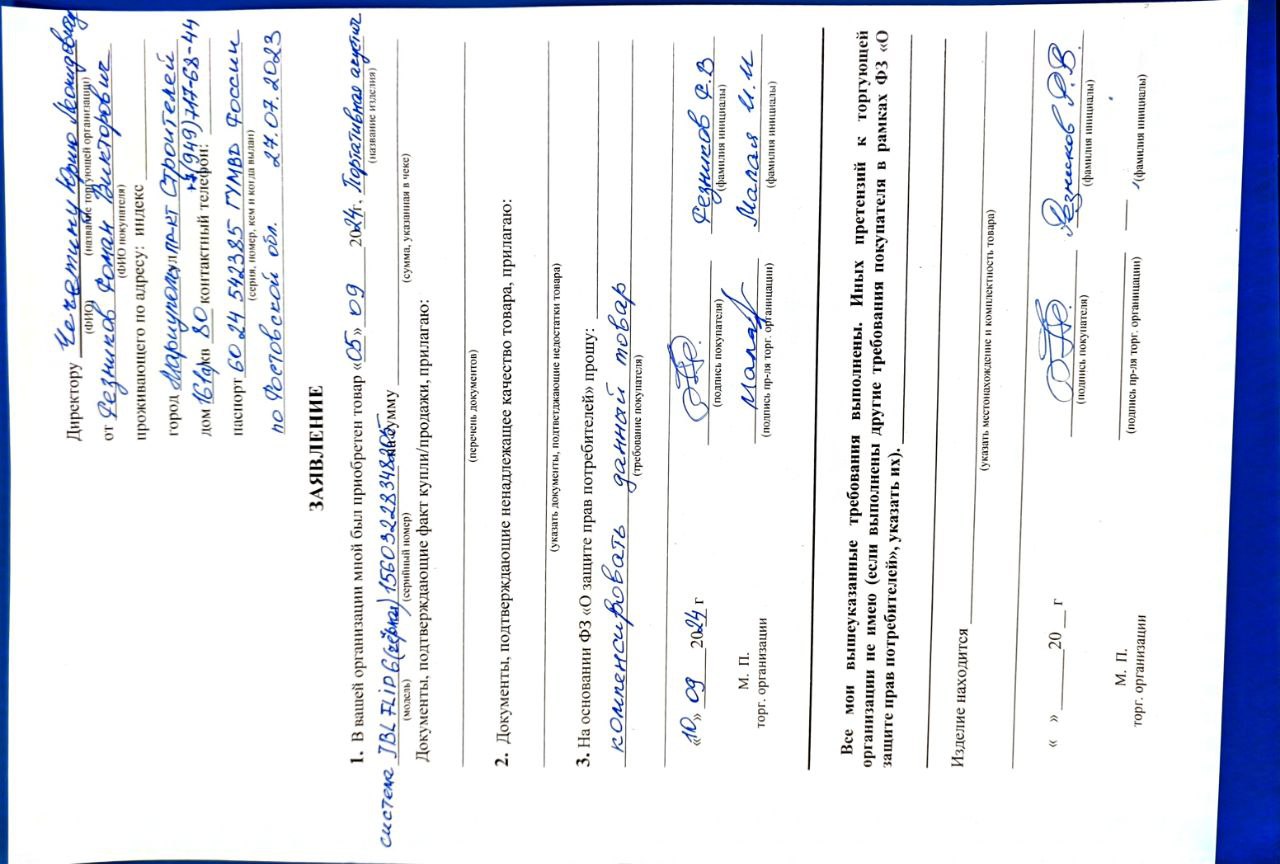 Директору Чечетину Юрию Леонидовичу
(ФИО) (название торгующей организации)
от Резников Роман Викторович
(ФИО покупателя)
проживающего по адресу: индекс
город Мариуполь пр-кт Строителей
+7(949)717-68-44
дом 161а кв 80 контактный телефон:
паспорт 60 24 542385 ГУМВД России
(серия, номер, кем и когда выдан)
по Ростовской обл. 27.07.2023
ЗАЯВЛЕНИЕ
1. В вашей организации мной был приобретен товар «05» 09 2024г. Портативная акустич
(название изделия)
система JBL FLIP 6 (чёрная) 15603228348205 на сумму
(модель) (серийный номер) (сумма, указанная в чеке)
Документы, подтверждающие факт купли/продажи, прилагаю:
(перечень документов)
2. Документы, подтверждающие ненадлежащее качество товара, прилагаю:
(указать документы, подтветджающие недостатки товара)
3. На основании ФЗ «О защите прав потребителей» прошу:
компенсировать данный товар
(требование покупателя)
«10» 09 2024 г Резников Р.В
(подпись покупателя) (фамилия инициалы)
М. П. Малая Малая И.И
торг. организации (подпись пр-ля торг. организации) (фамилия инициалы)
Все мои вышеуказанные требования выполнены. Иных претензий к торгующей
организации не имею (если выполнены другие требования покупателя в рамках ФЗ «О
защите прав потребителей», указать их).
Изделие находится
(указать местонахождение и комплектность товара)
« » 20 г Резников Р.В.
(подпись покупателя) (фамилия инициалы)
М. П.
торг. организации (подпись пр-ля торг. организации) (фамилия инициалы)